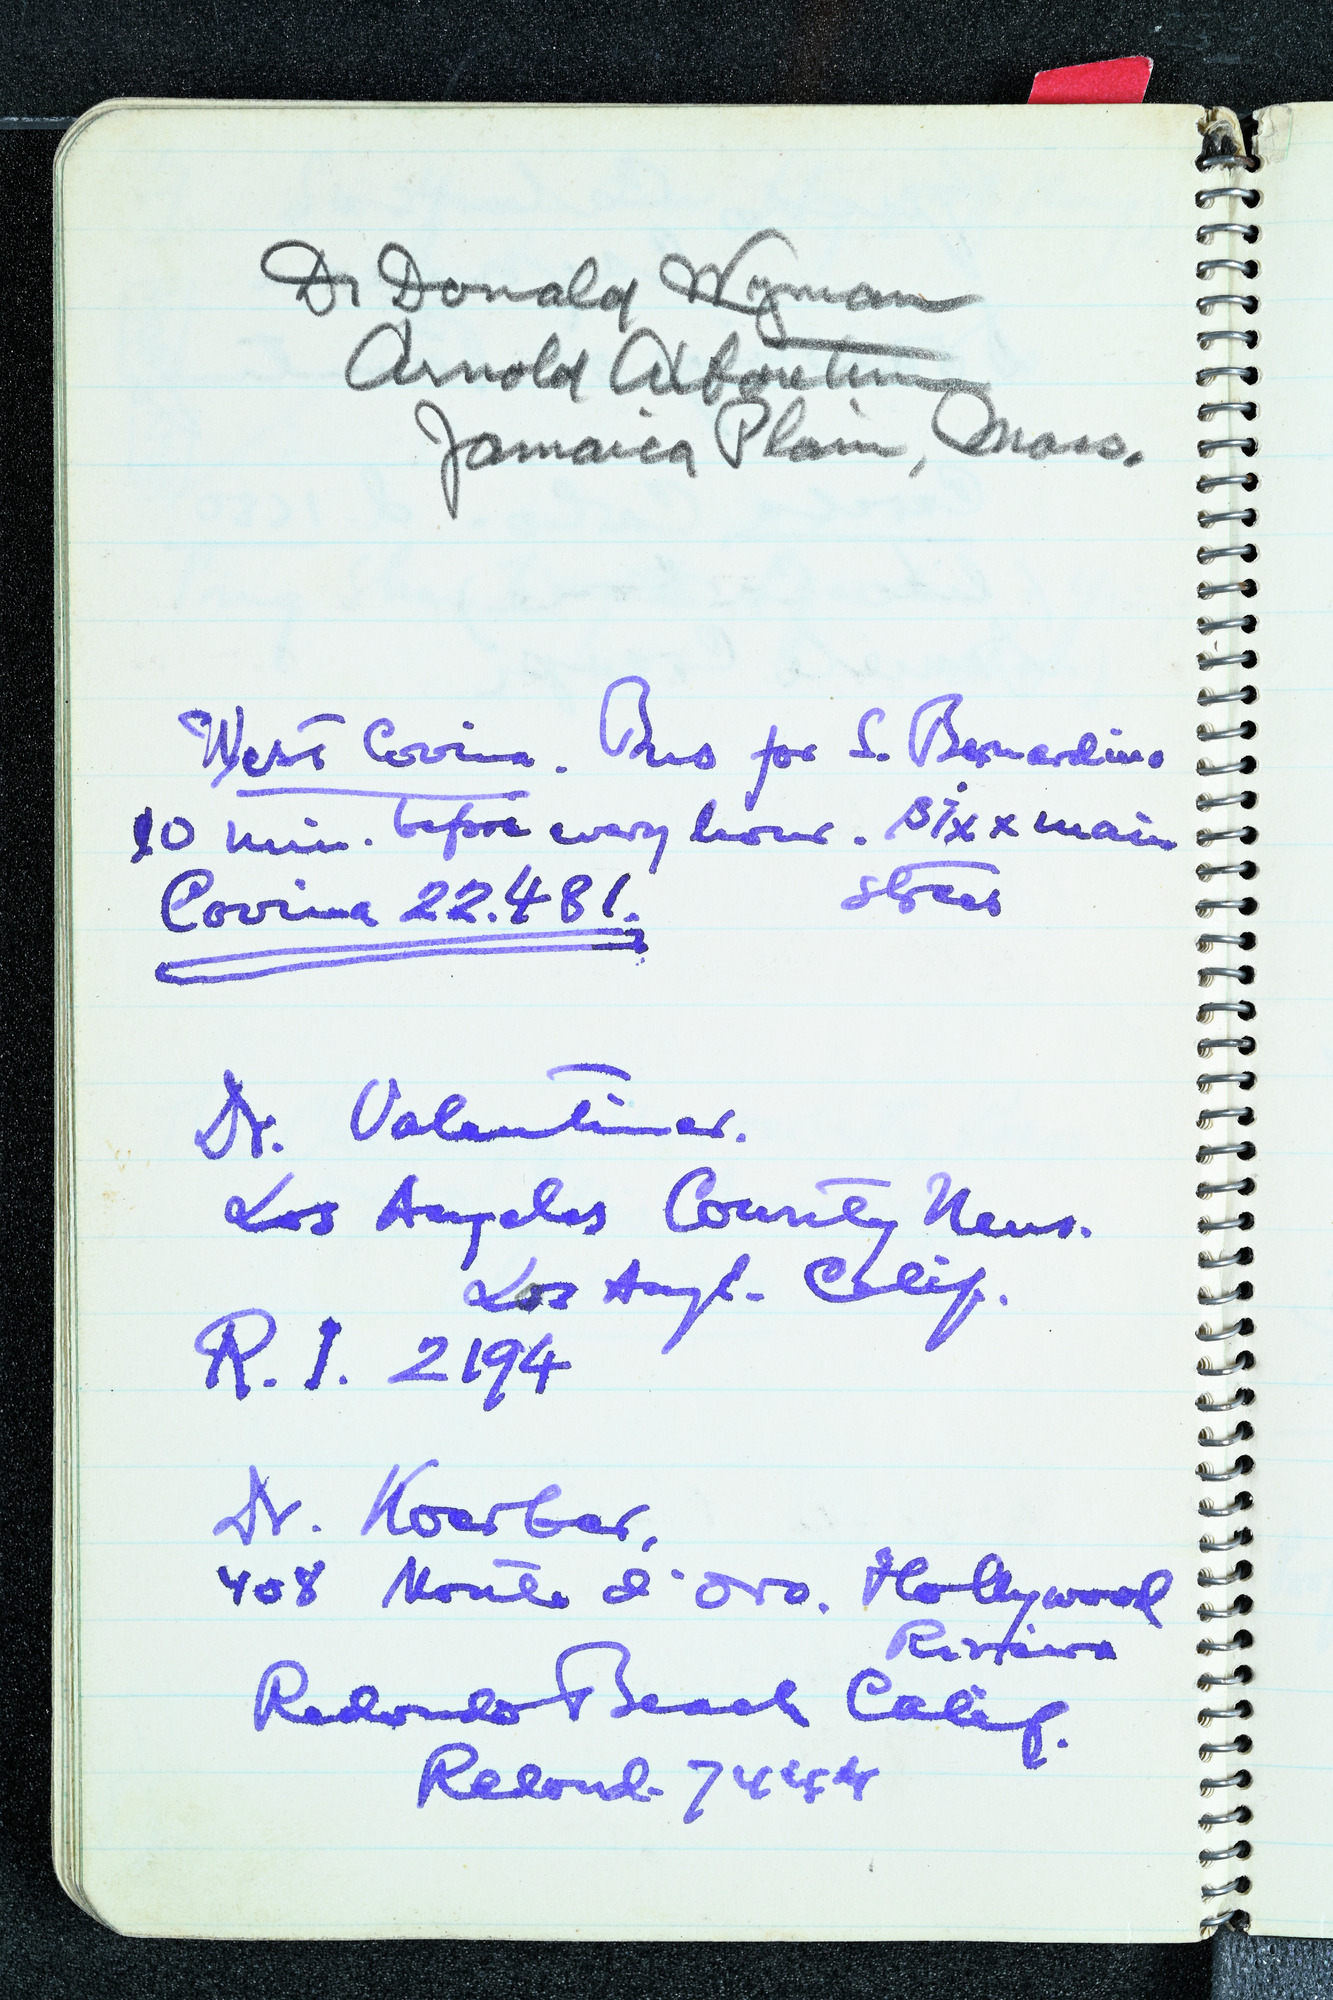 Dr Donald Wyman
Arnold Arboretum
Jamaica Plain, Mass.
West Covina. Bus for S. Bernardino
10 min. before every hour. Six x main
Covina 22.481. stres
Dr. Valentiner.
Los Angeles County Mus.
Los Angl. Calif.
R. I. 2194
Dr. Koerber,
408 Monte d'oro. Hollywood
Riviera
Redondo Beach Calif.
Redond. 7444